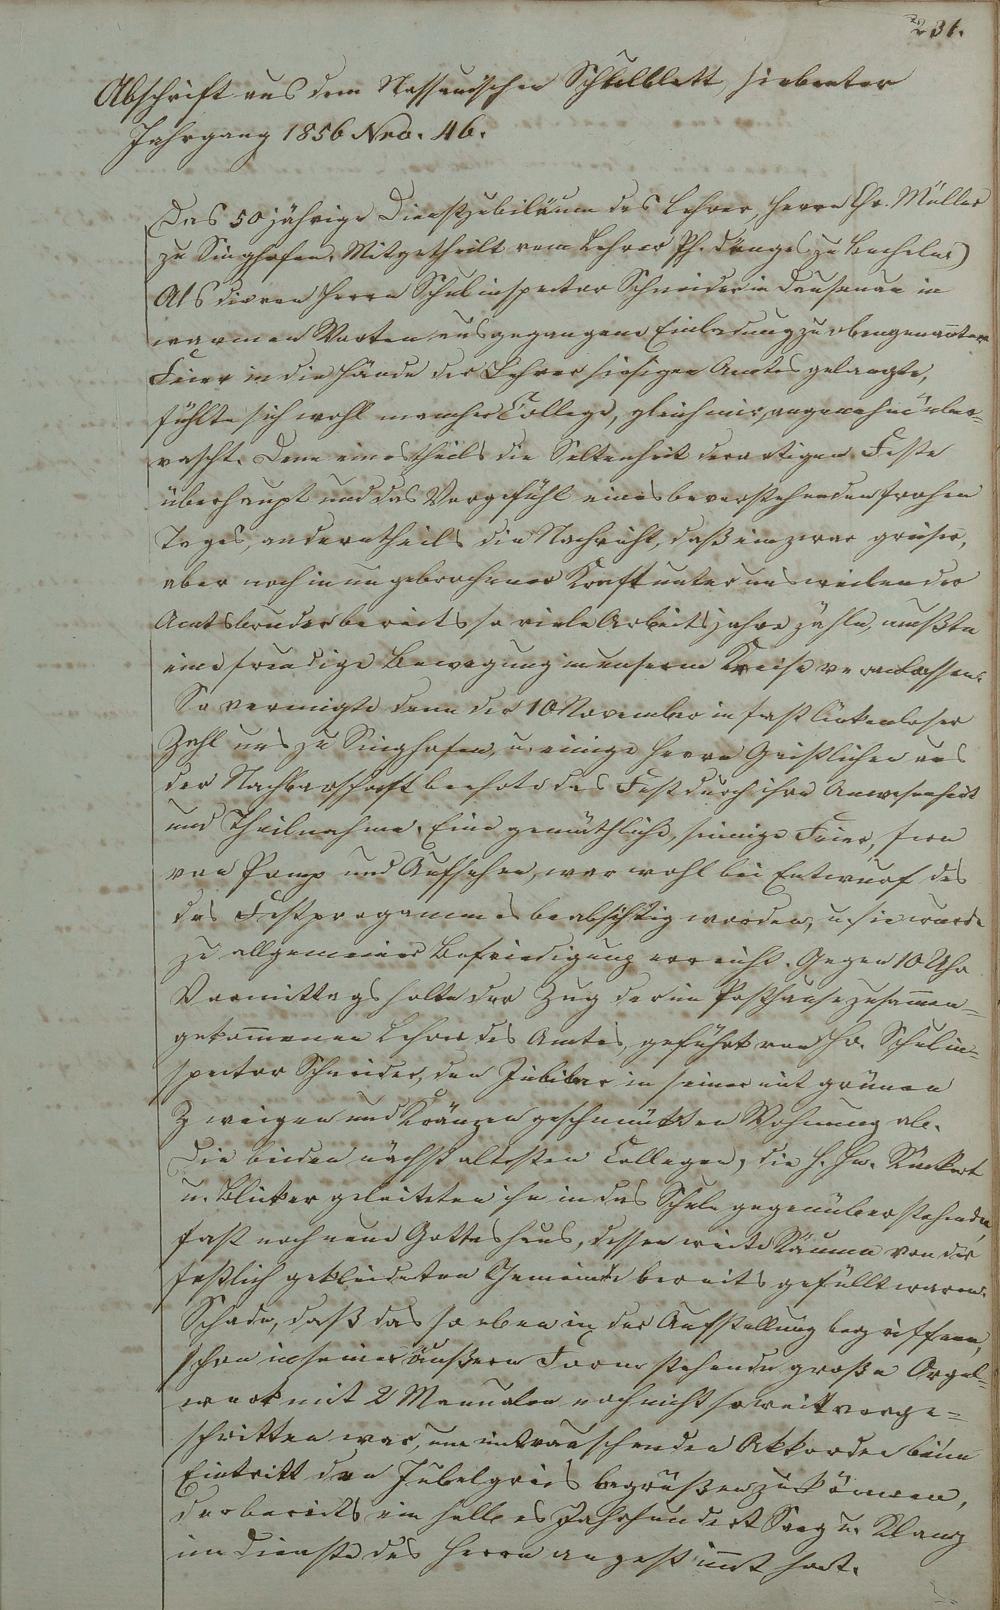 231.
Abschrift aus dem Nassauischen Schulblatt, siebenter
Jahrgang 1856 Nro. 46.
(Das 50jährige Dienstjubiläum des Lehrer, Herrn Chr. Müller
zu Singhofen. Mitgetheilt vom Lehrer Ph. Dönges zu Bechelns)
Als die von Herrn Schulinspector Schneider in Dausenau in
warmen Worten ausgegangene Einladung zu obengenannter
Feier in die Hände der Lehrer hiesigen Amtes gelangte,
fühlte sich wohl mancher College, gleich mir, angenehm über-
rascht. Denn eines theils die Seltenheit derartigen Feste
überhaupt und das Vorgefühl eines bevorstehenden frohen
Tages, anderntheils die Nachricht, daß ein zwar greiser,
aber noch in ungebrochener Kraft unter uns weilender
Amtsbruder bereits so viele Arbeitsjahre zähle, mußte
eine freudige Bewegung in unserm Kreise veranlassen.
So vereinigte denn der 10 November in fast lückenloser
Zahl uns zu Singhofen, u. einige Herrn Geistlichen aus
der Nachbarschaft beehrte das Fest durch ihre Anwesenheit
und Theilnahme. Eine gemüthliche, sinnige Feier, fern
von Pomp und Aufsehen, war wohl bei Entwurf des
des Festprogammes beabsichtig worden, u. sie wurde
zu allgemeiner Befriedigung erreicht. Gegen 10 Uhr
Vormittags holte der Zug der im Posthause zusam̄en-
gekom̄enen Lehrer des Amtes, geführt von Hr. Schulin-
spector Schneider, den Jubilar in seiner mit grünen
Zweigen und Kränzen geschmückten Wohnung ab.
Die beiden nächst altesten Collegen, die H. Hn.
u. Blicker geleiteten ihn in das Schule gegenüberstehende,
fast noch neue Gotteshaus, dessen weite Räume von der
festlich gekleideten Gemeinde bereits gefüllt waren.
Schade, daß das so eben in der Aufstellung begriffene,
schon in seiner äußern Form stehende große Orgel-
werk mit 2 Manualen noch nicht so weit vorge-
schritten war, um mit rauschenden Akkorden beim
Eintritt den Jubelgreis begrüßen zu können,
der bereits ein halbes Jahrhundert Sang u. Klang
im Dienste des Herrn angestim̄t hat.